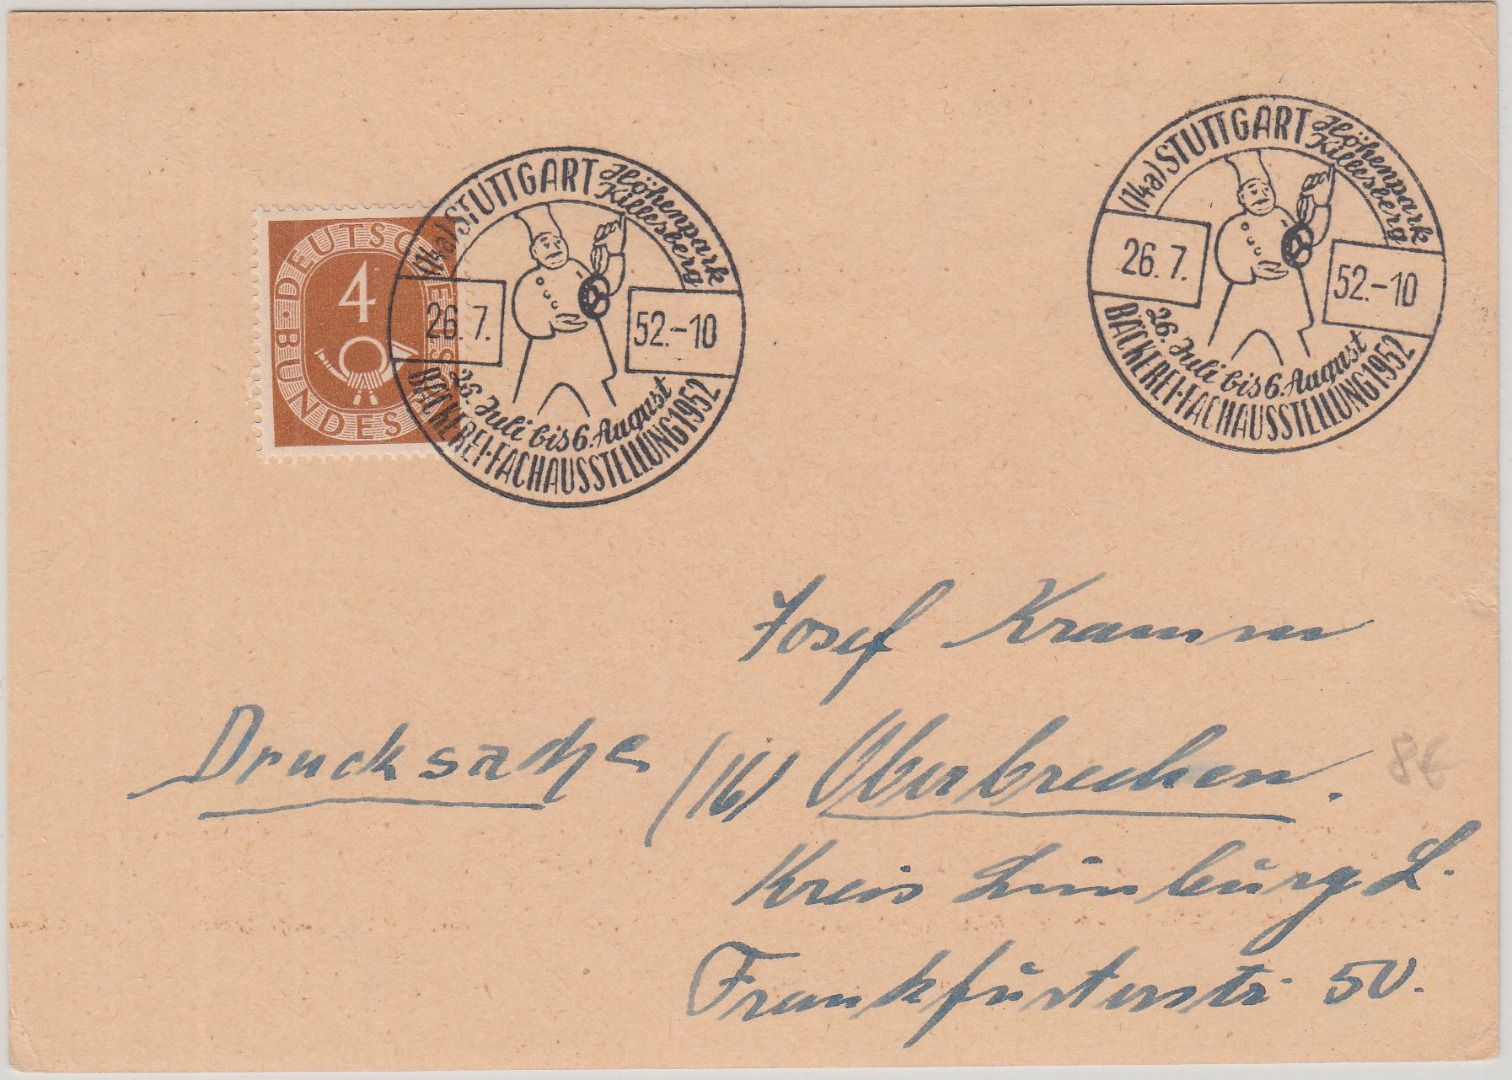 DEUTSCHE
4
BUNDES
(14a) STUTTGART
Höhenpark
Killesberg
26.7. 52.-10
26. Juli bis 6. August
BÄCKEREI-FACHAUSSTELLUNG 1952
(14a) STUTTGART
Höhenpark
Killesberg
26.7. 52.-10
26. Juli bis 6. August
BÄCKEREI-FACHAUSSTELLUNG 1952
Josef Kramm
Drucksache (16) Oberbrechen.
8€
Kreis Limburg L.
Frankfurterstr. 50.